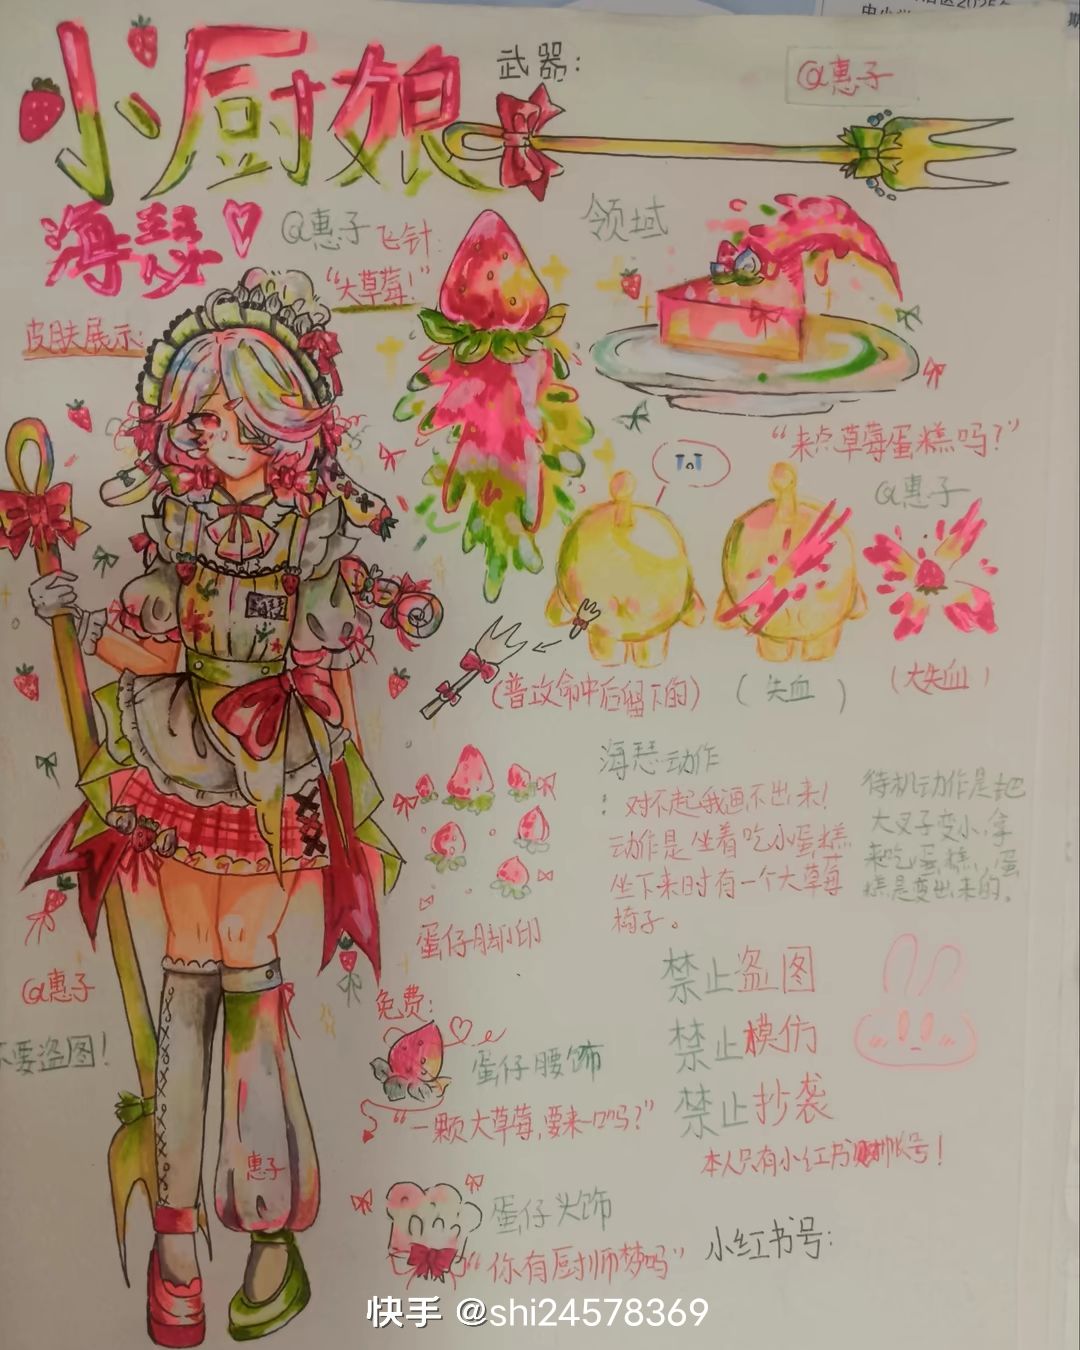 小厨娘
武器：
@惠子
海瑟
@惠子
飞针：
“大草莓！”
领域
皮肤展示：
“来点草莓蛋糕吗？”
@惠子
（普攻命中后留下的）
（失血）
（大失血）
海瑟动作
：对不起我画不出来！
动作是坐着吃小蛋糕
坐下来时有一个大草莓
椅子。
待机动作是把
大叉子变小，拿
来吃蛋糕，蛋
糕是变出来的。
蛋仔脚印
@惠子
不要盗图！
免费：
蛋仔腰饰
“一颗大草莓，要来一口吗？”
禁止盗图
禁止模仿
禁止抄袭
本人只有小红书账号！
惠子
蛋仔头饰
“你有厨师梦吗”
小红书号：
快手 @shi24578369